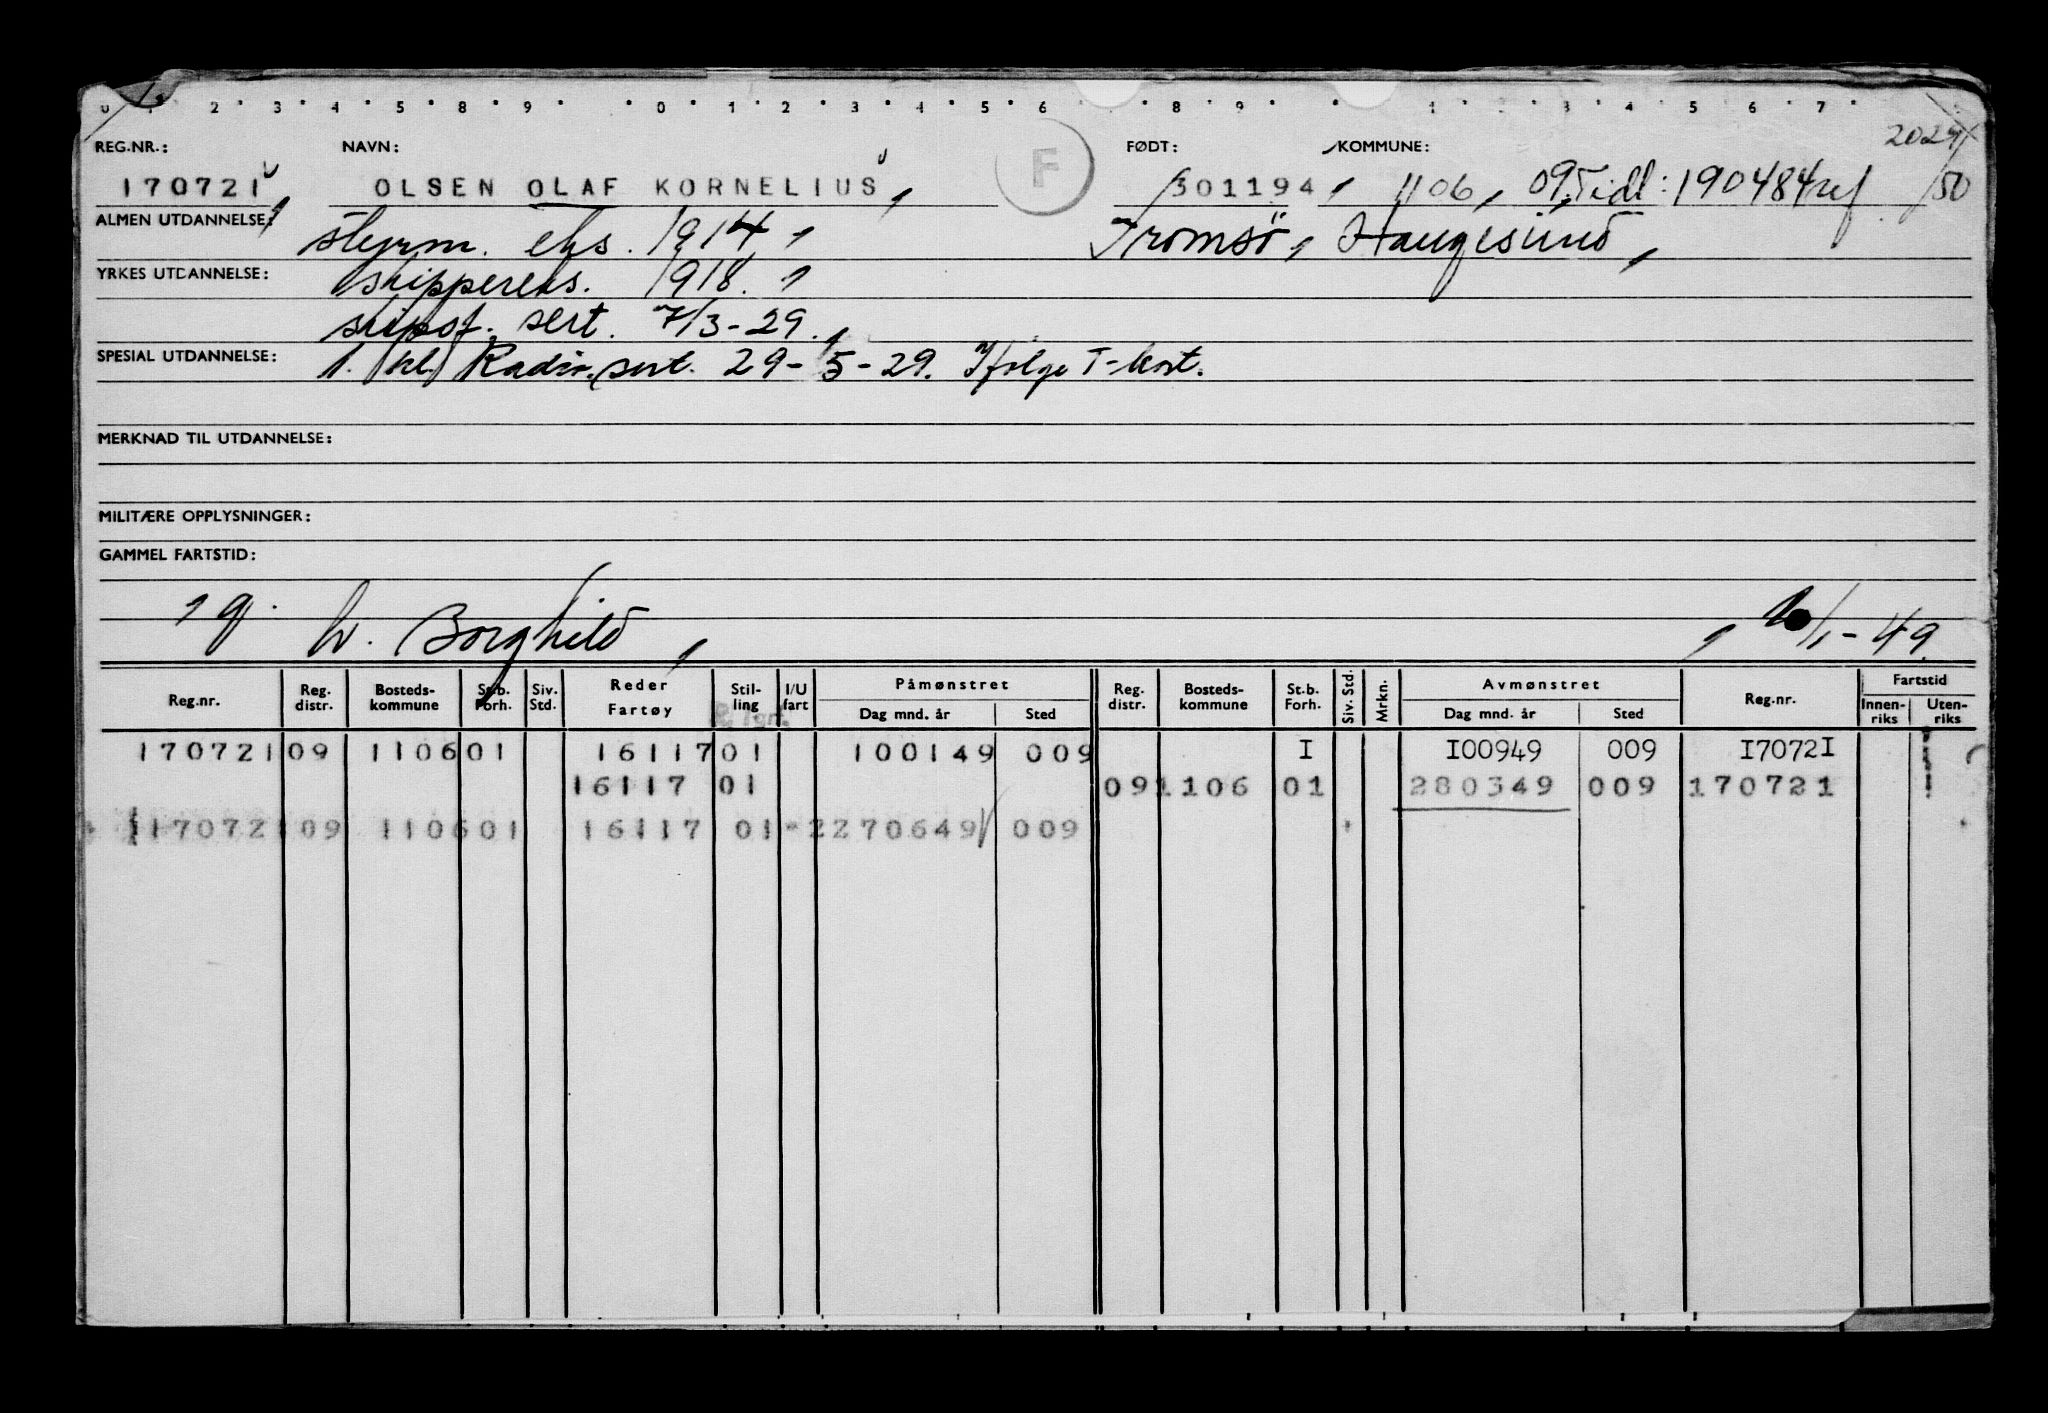 2 3 4 5 8 9 0 1 2 3 4 5 6 8 9 1 3 4 5 6 7
REG.NR.: NAVN: F FØDT: KOMMUNE:
170721 OLSEN OLAF KORNELIUS 301194, 1106, 09, Tidl: 190484 /50
ALMEN UTDANNELSE: styrm. eks. 1914, Tromsö, Haugesund,
YRKES UTDANNELSE: skippereks. 1918.,
skipsf. sert. 7/3-29.,
SPESIAL UTDANNELSE: 1. kl. Radio. sert. 29-5-29. Ifølge T-kort.
MERKNAD TIL UTDANNELSE:
MILITÆRE OPPLYSNINGER:
GAMMEL FARTSTID:
, g. h. Borghild, , /1-49.
Reg.nr. Reg. distr. Bosteds-kommune St.b. Forh. Siv. Std. Reder Fartøy Stil-ling I/U fart Påmønstret Dag mnd. år Sted Reg. distr. Bosteds-kommune St.b. Forh. Siv. Std. Mrkn. Avmønstret Dag mnd. år Sted Reg.nr. Fartstid Innen-riks Uten-riks
170721 09 1106 01 16117 01 100149 009 I I00949 009 I7072I
16117 01 09 1106 01 280349 009 170721
170721 09 1106 01 16117 01 - 2 270649 009